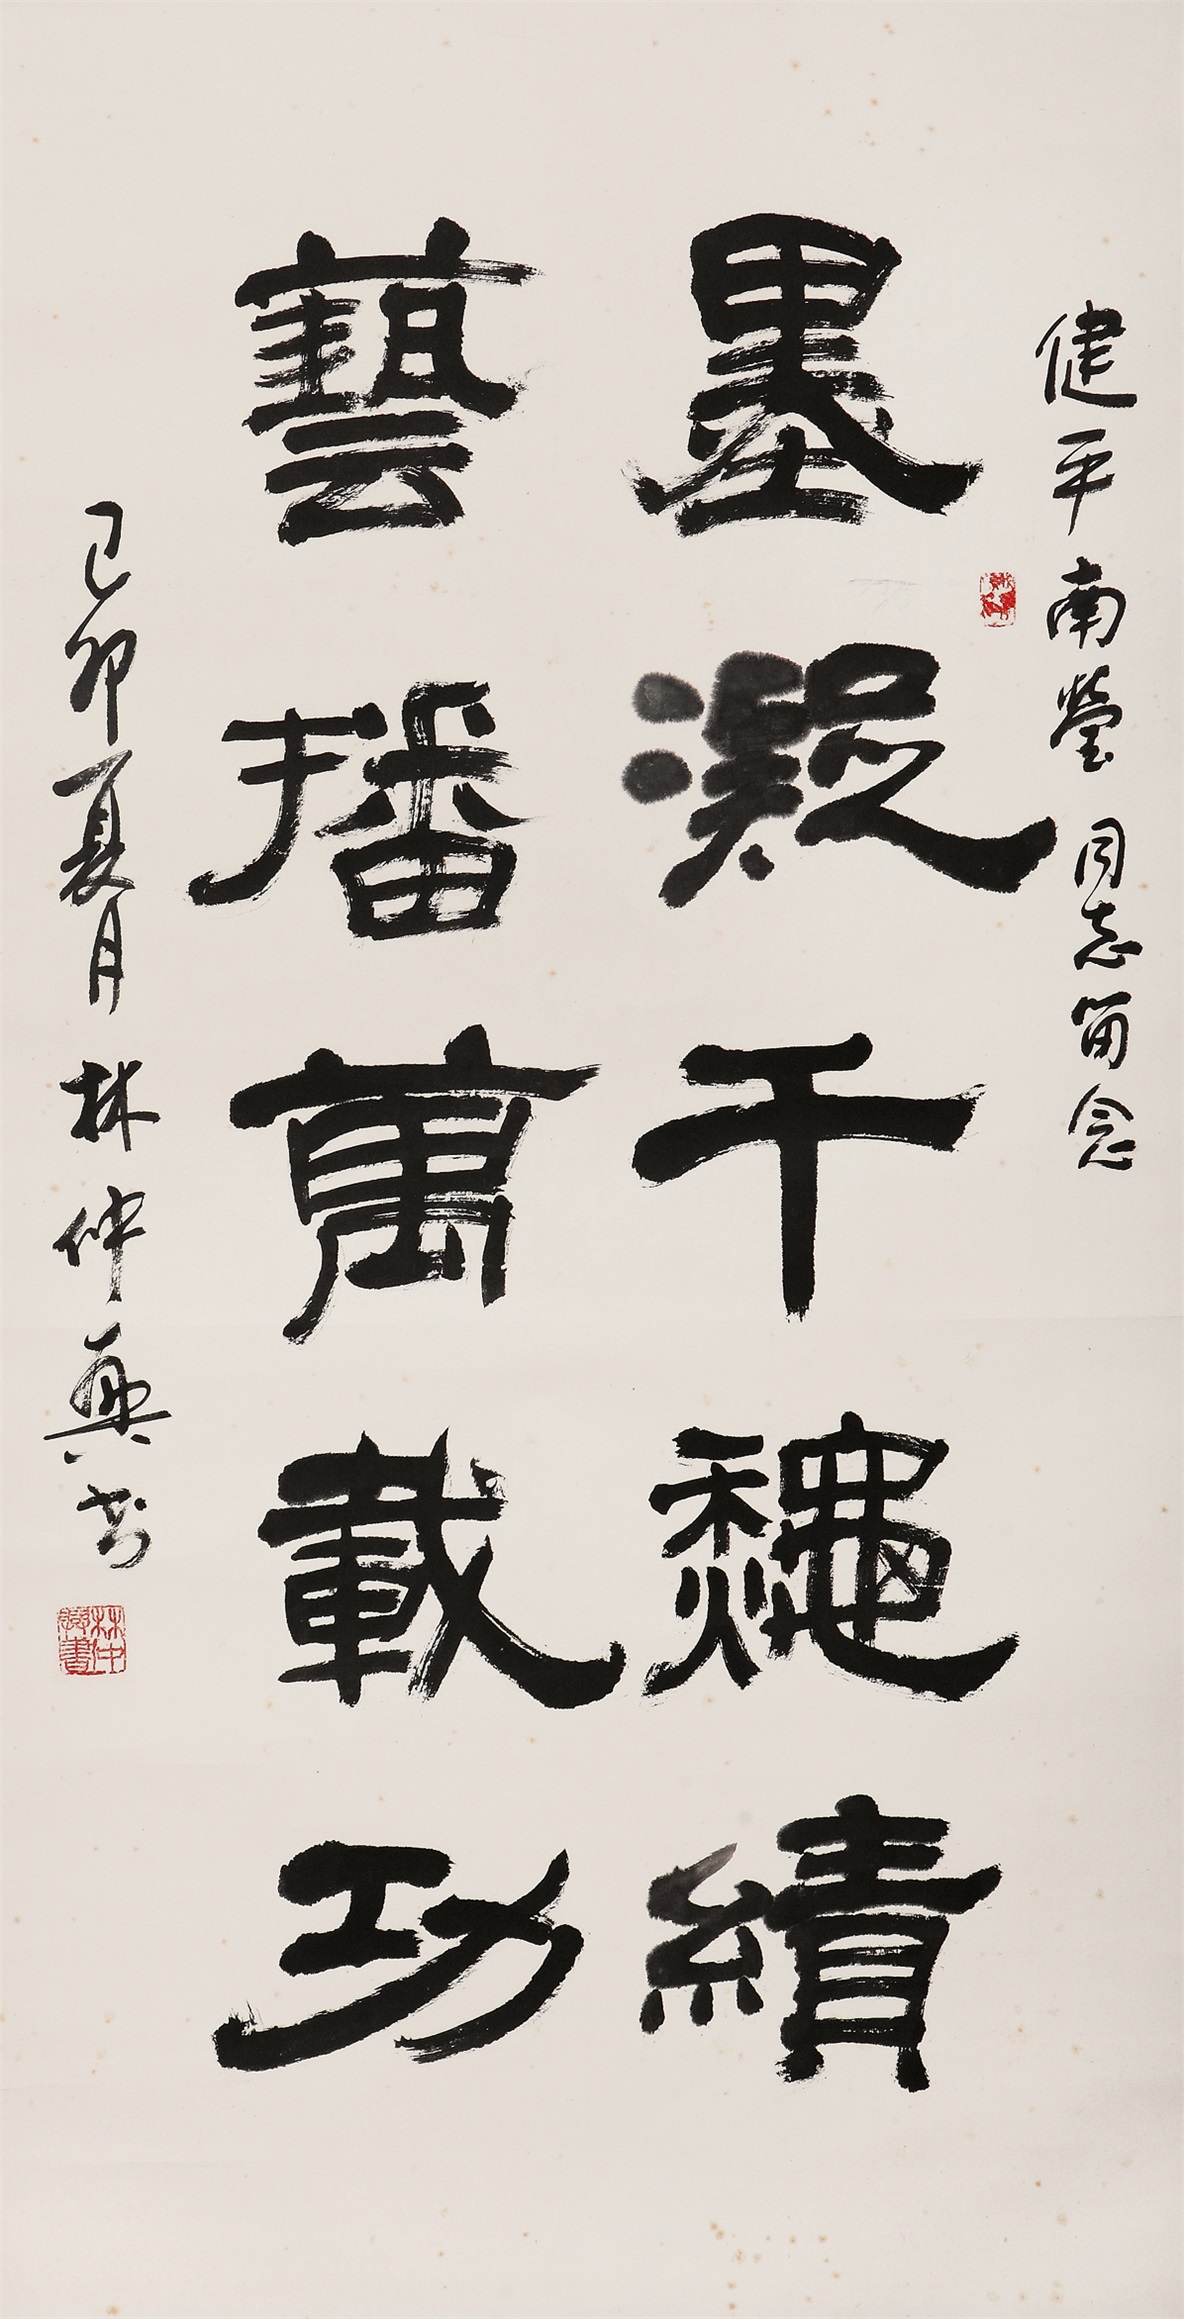 健平南瑩同志留念
墨凝千龝績
藝播萬載功
己卯夏月林仲興书
林仲興書